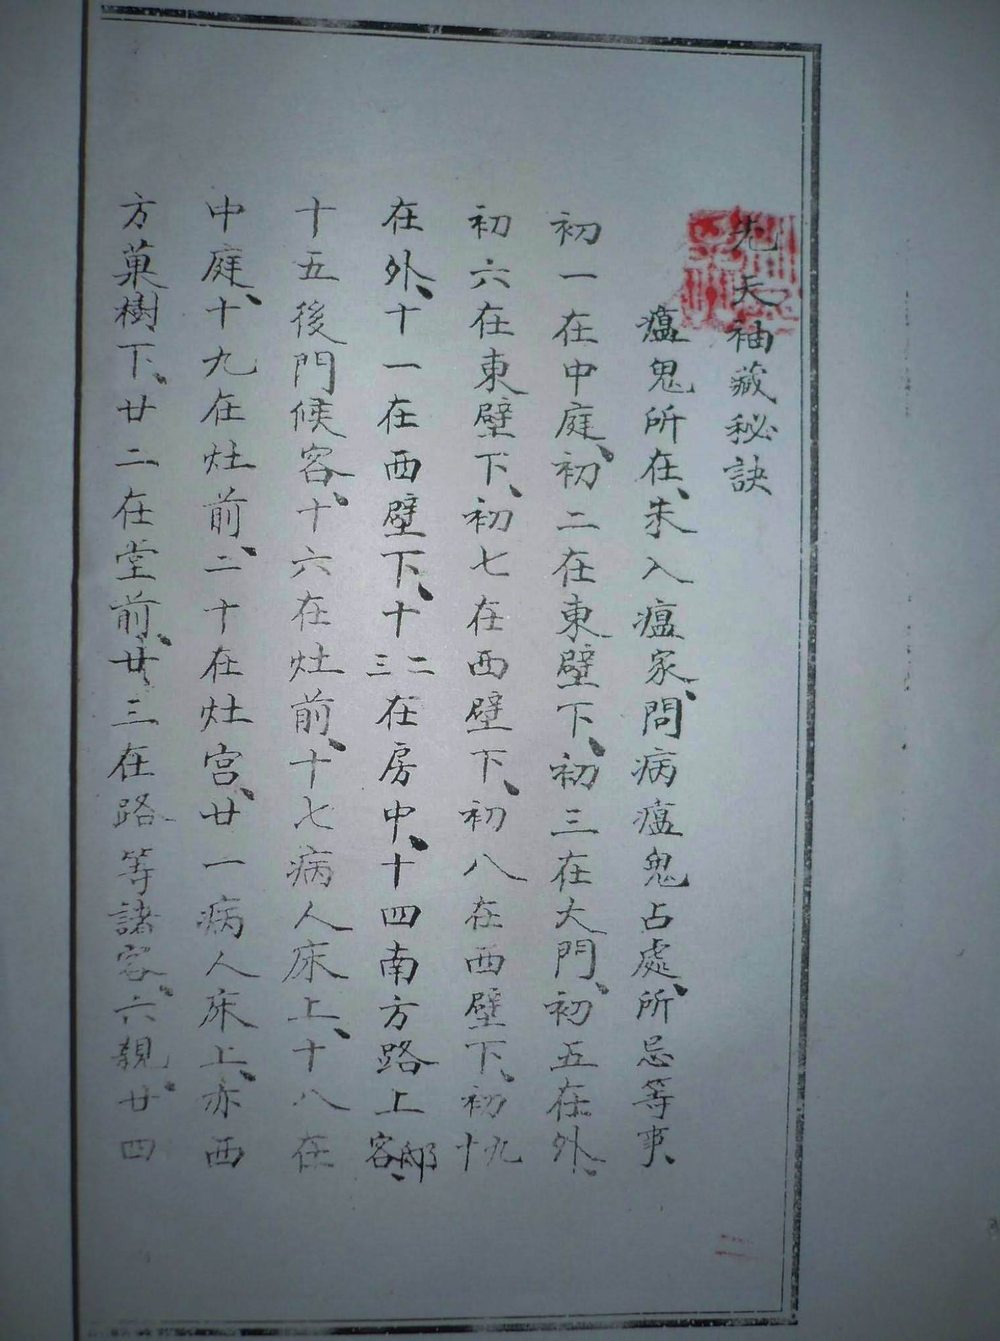 先天袖藏秘訣
瘟鬼所在、未入瘟家、問病瘟鬼占處、所忌等事、
初一在中庭、初二在東壁下、初三在大門、初五在外、
初六在東壁下、初七在西壁下、初八在西壁下、初九十
在外、十一在西壁下、十二三在房中、十四南方路上邸客、
十五後門候客、十六在灶前、十七病人床上、十八在
中庭、十九在灶前、二十在灶宮、廿一病人床上、亦西
方菓樹下、廿二在堂前、廿三在路等諸客、六親、廿四
二